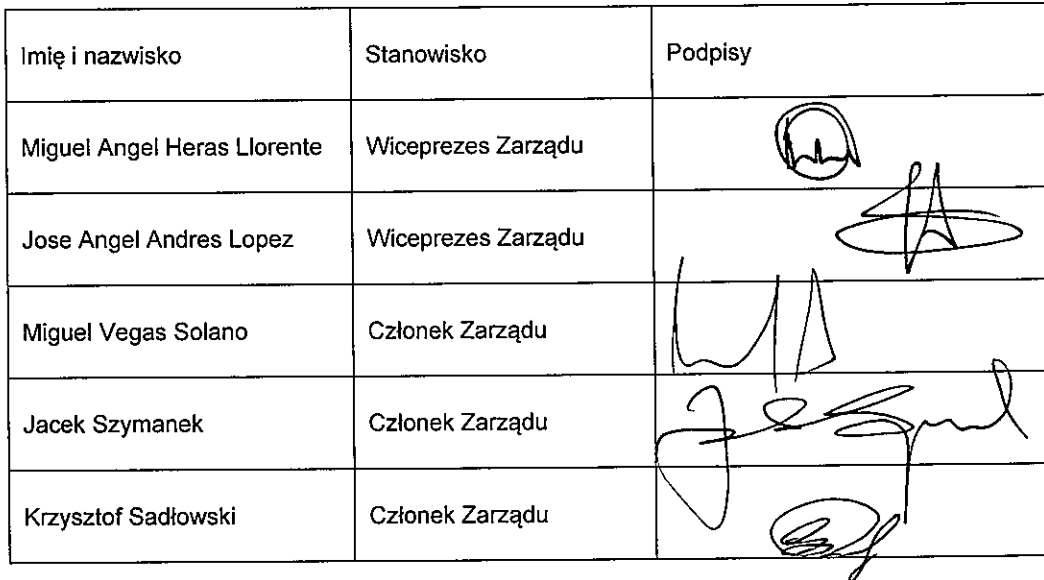 Imię i nazwisko Stanowisko Podpisy
Miguel Angel Heras Llorente Wiceprezes Zarządu
Jose Angel Andres Lopez Wiceprezes Zarządu
Miguel Vegas Solano Członek Zarządu
Jacek Szymanek Członek Zarządu
Krzysztof Sadłowski Członek Zarządu